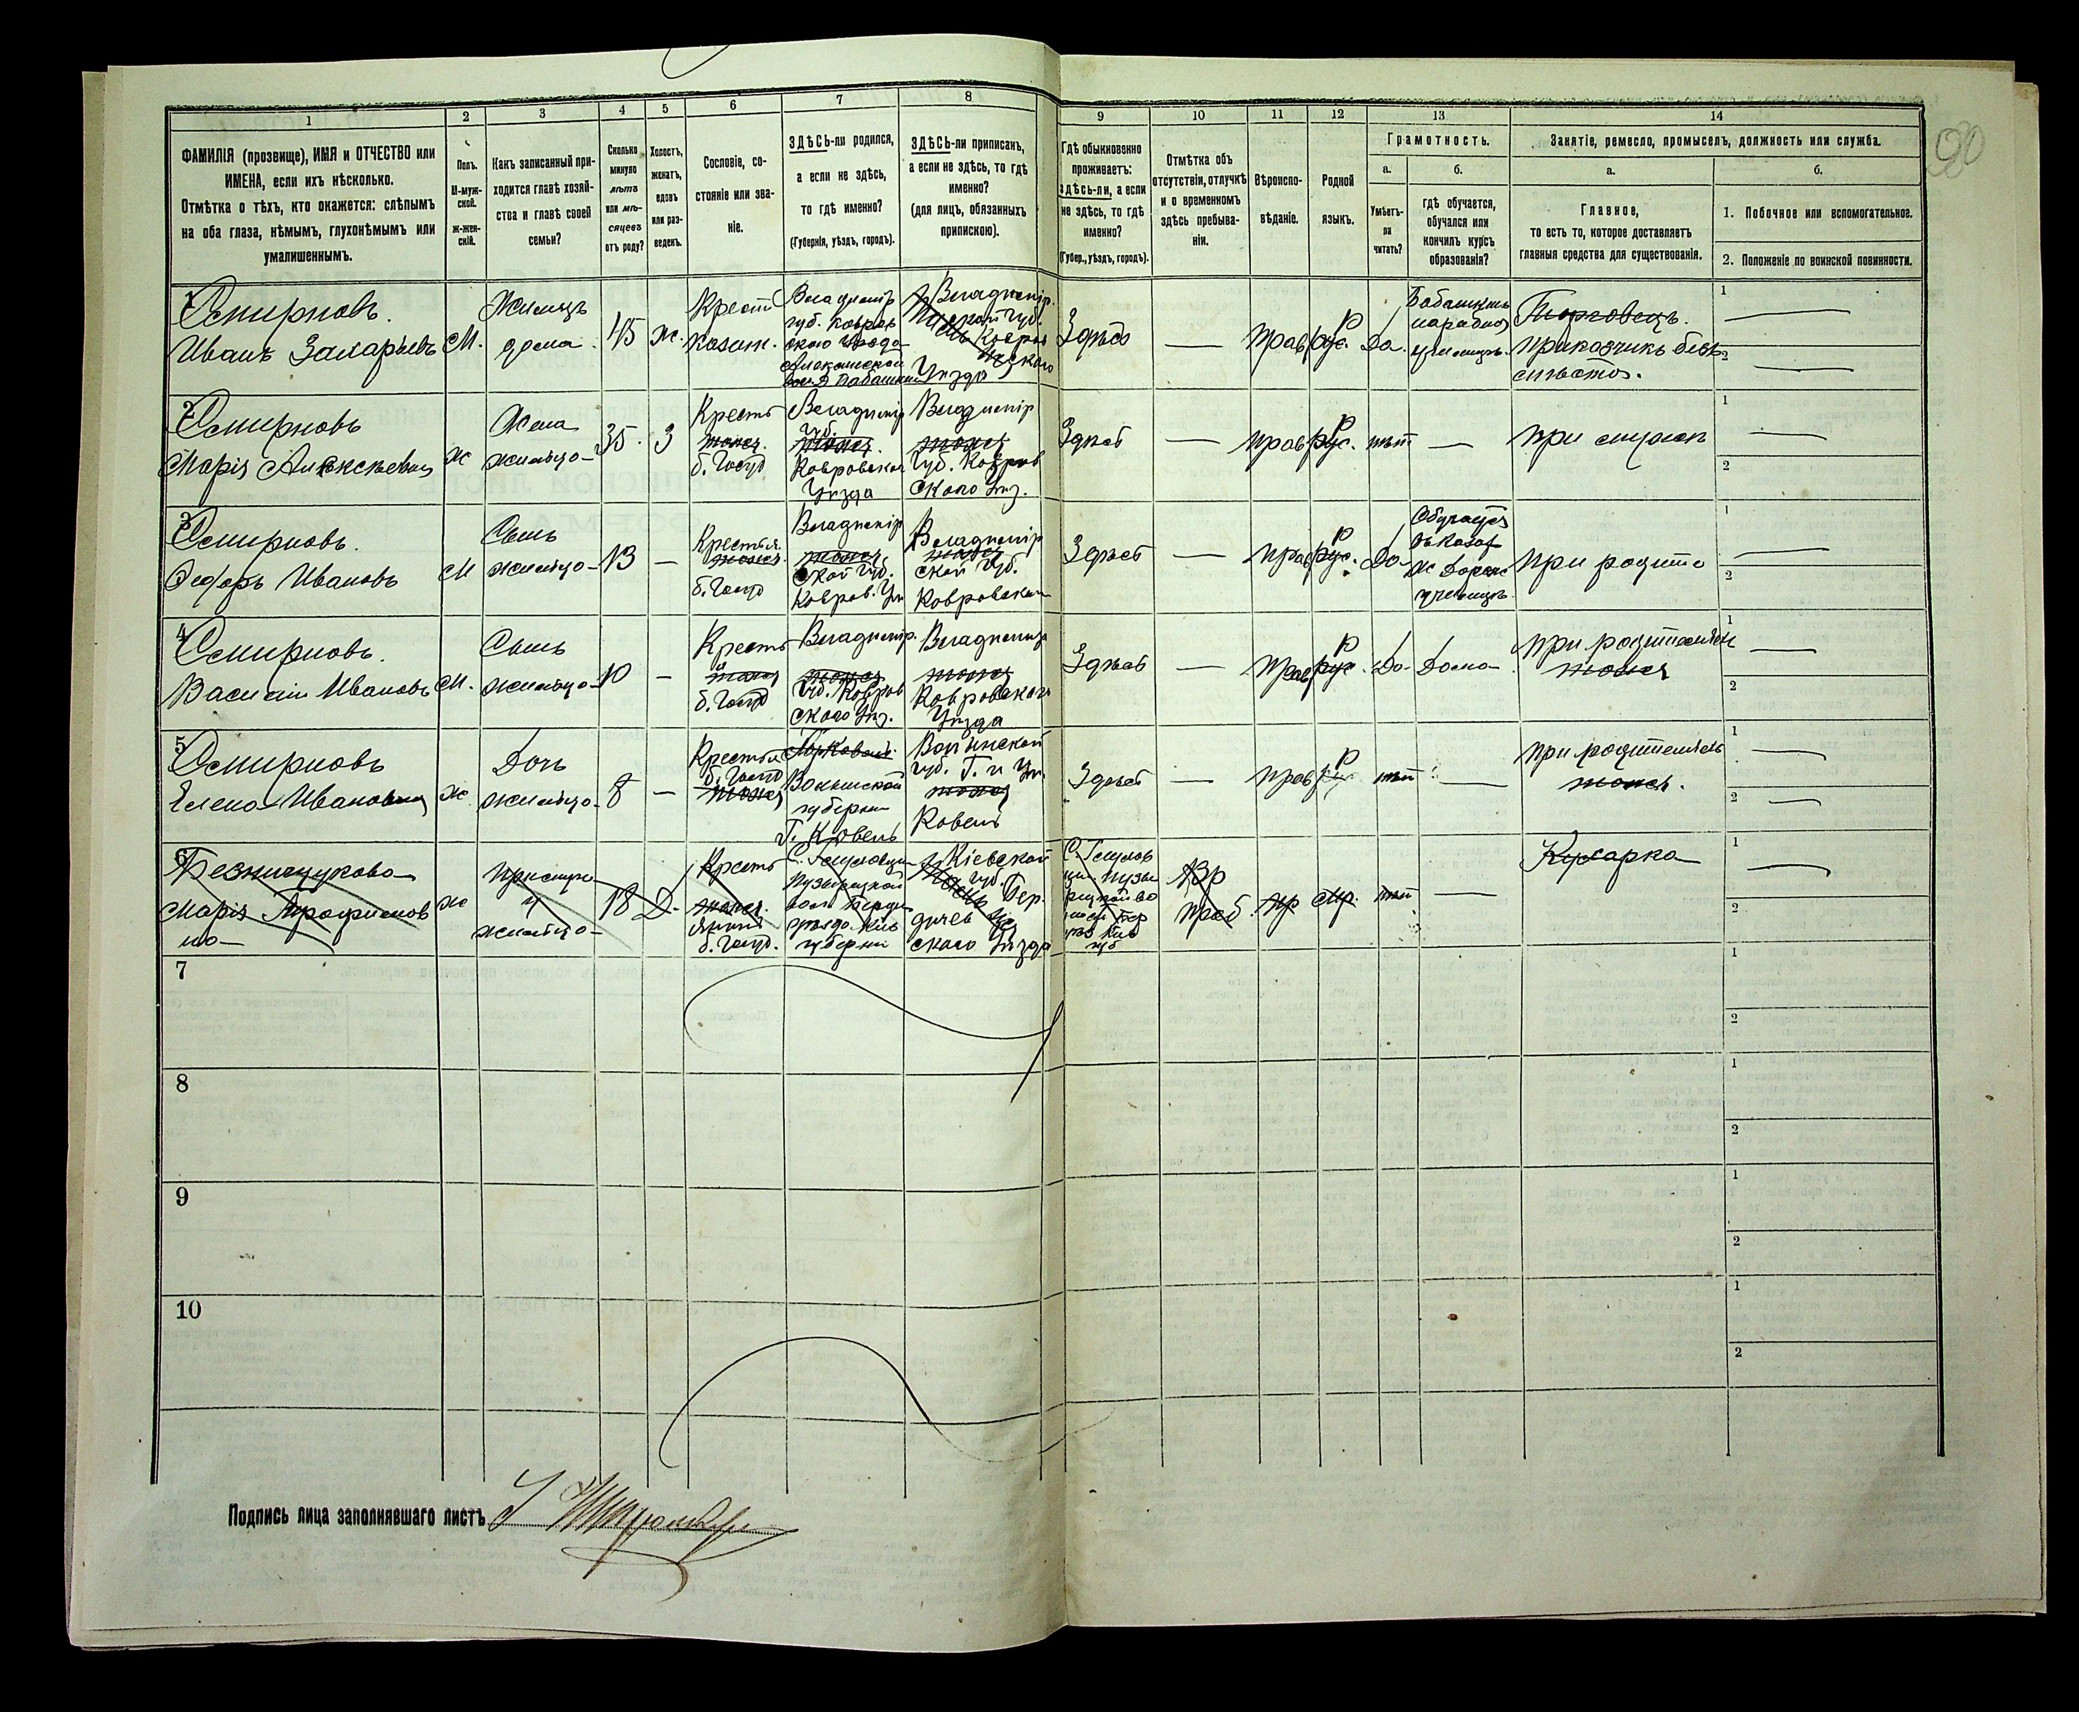 90
1
2
3
4
5
6
7
8
9
10
11
12
13
14
ФАМИЛІЯ (прозвище), ИМЯ и ОТЧЕСТВО или
ИМЕНА, если ихъ нѣсколько.
Отмѣтка о тѣхъ, кто окажется: слѣпымъ
на оба глаза, нѣмымъ, глухонѣмымъ или
умалишеннымъ.
Полъ.
М-муж-
ской.
Ж-жен-
скій.
Какъ записанный при-
ходится главѣ хозяй-
ства и главѣ своей
семьи?
Сколько
минуло
лѣтъ
или мѣ-
сяцевъ
отъ роду?
Холостъ,
женатъ,
вдовъ
или раз-
веденъ.
Сословіе, со-
стояніе или зва-
ніе.
ЗДѢСЬ-ли родился,
а если не здѣсь,
то гдѣ именно?
(Губернія, уѣздъ, городъ).
ЗДѢСЬ-ли приписанъ,
а если не здѣсь, то гдѣ
именно?
(для лицъ, обязанныхъ
припискою).
Гдѣ обыкновенно
проживаетъ:
здѣсь-ли, а если
не здѣсь, то гдѣ
именно?
(Губер., уѣздъ, городъ).
Отмѣтка объ
отсутствіи, отлучкѣ
и о временномъ
здѣсь пребыва-
ніи.
Вѣроиспо-
вѣданіе.
Родной
языкъ.
Грамотность.
а.
Умѣетъ-
ли
читать?
б.
гдѣ обучается,
обучался или
кончилъ курсъ
образованія?
Занятіе, ремесло, промыселъ, должность или служба.
а.
Главное,
то есть то, которое доставляетъ
главныя средства для существованія.
б.
1. Побочное или вспомогательное.
2. Положеніе по воинской повинности.
1
Смирновъ.
Иванъ Захарьевъ
М.
Жилецъ
дома
45
ж.
Крест
Владимір
губ. Ковров
ского уѣзда
Владимір.
уѣзда
Здѣсь
—
Прав
рус.
Р
Да.
народное
училищѣ.
Торговецъ.
Приказчикъ безъ
1
2
2
Смирновъ
Марія Алексѣевна
ж
Жена
жильца
35.
З
Крестъ
тоже
б. Госуд
Владимір
губ.
тоже.
Ковровскаго
Уѣзда
Владимір
тоже
губ. Ковров
ского Уѣз.
Здѣсь
—
прав
рус.
Р
нѣт
—
при мужѣ
1
2
3
Смирновъ.
Ѳедоръ Ивановъ
М
Сынъ
жильца
13
—
Крестья.
тоже.
б. Госуд
Владимір
тоже
ской губ.
Ковров. Уѣ
Владимір
тоже
ской губ.
Ковровскаго
Здѣсь
—
прав
рус.
Р
Да
Обучается
училищѣ
при родите
1
2
4
Смирновъ.
Василій Ивановъ
М.
Сынъ
жильца
10
—
Крестъ
тоже
б. Госуд
Владимір.
тоже
губ. Ковров
ского Уѣз.
Владимир
тоже
Ковровскаго
Уѣзда
Здѣсь
—
Прав
рус
Р
Да
Дома
при родителяхъ
тоже
1
2
5
Смирновъ
Елена Ивановна
ж
Дочь
жильца
8
—
Крестья
б. Госуд
тоже
Волынской
губерни
Г. Ковель
Волынской
губ. Г. и Уѣ.
тоже
Ковель
Здѣсь
—
прав
Р
нѣт
—
при родителяхъ
тоже.
1
2
6
Марія Трофимов
на
ж
Прислуга
у
жильца
18
Д.
Крестъ
тоже.
б. Госуд.
губерни
Кіевской
губ. Бер-
дичев
ского Уѣзда
пр
нѣт
—
Кухарка
1
2
7
1
2
8
1
2
9
1
2
10
1
2
Подпись лица заполнявшаго листъ